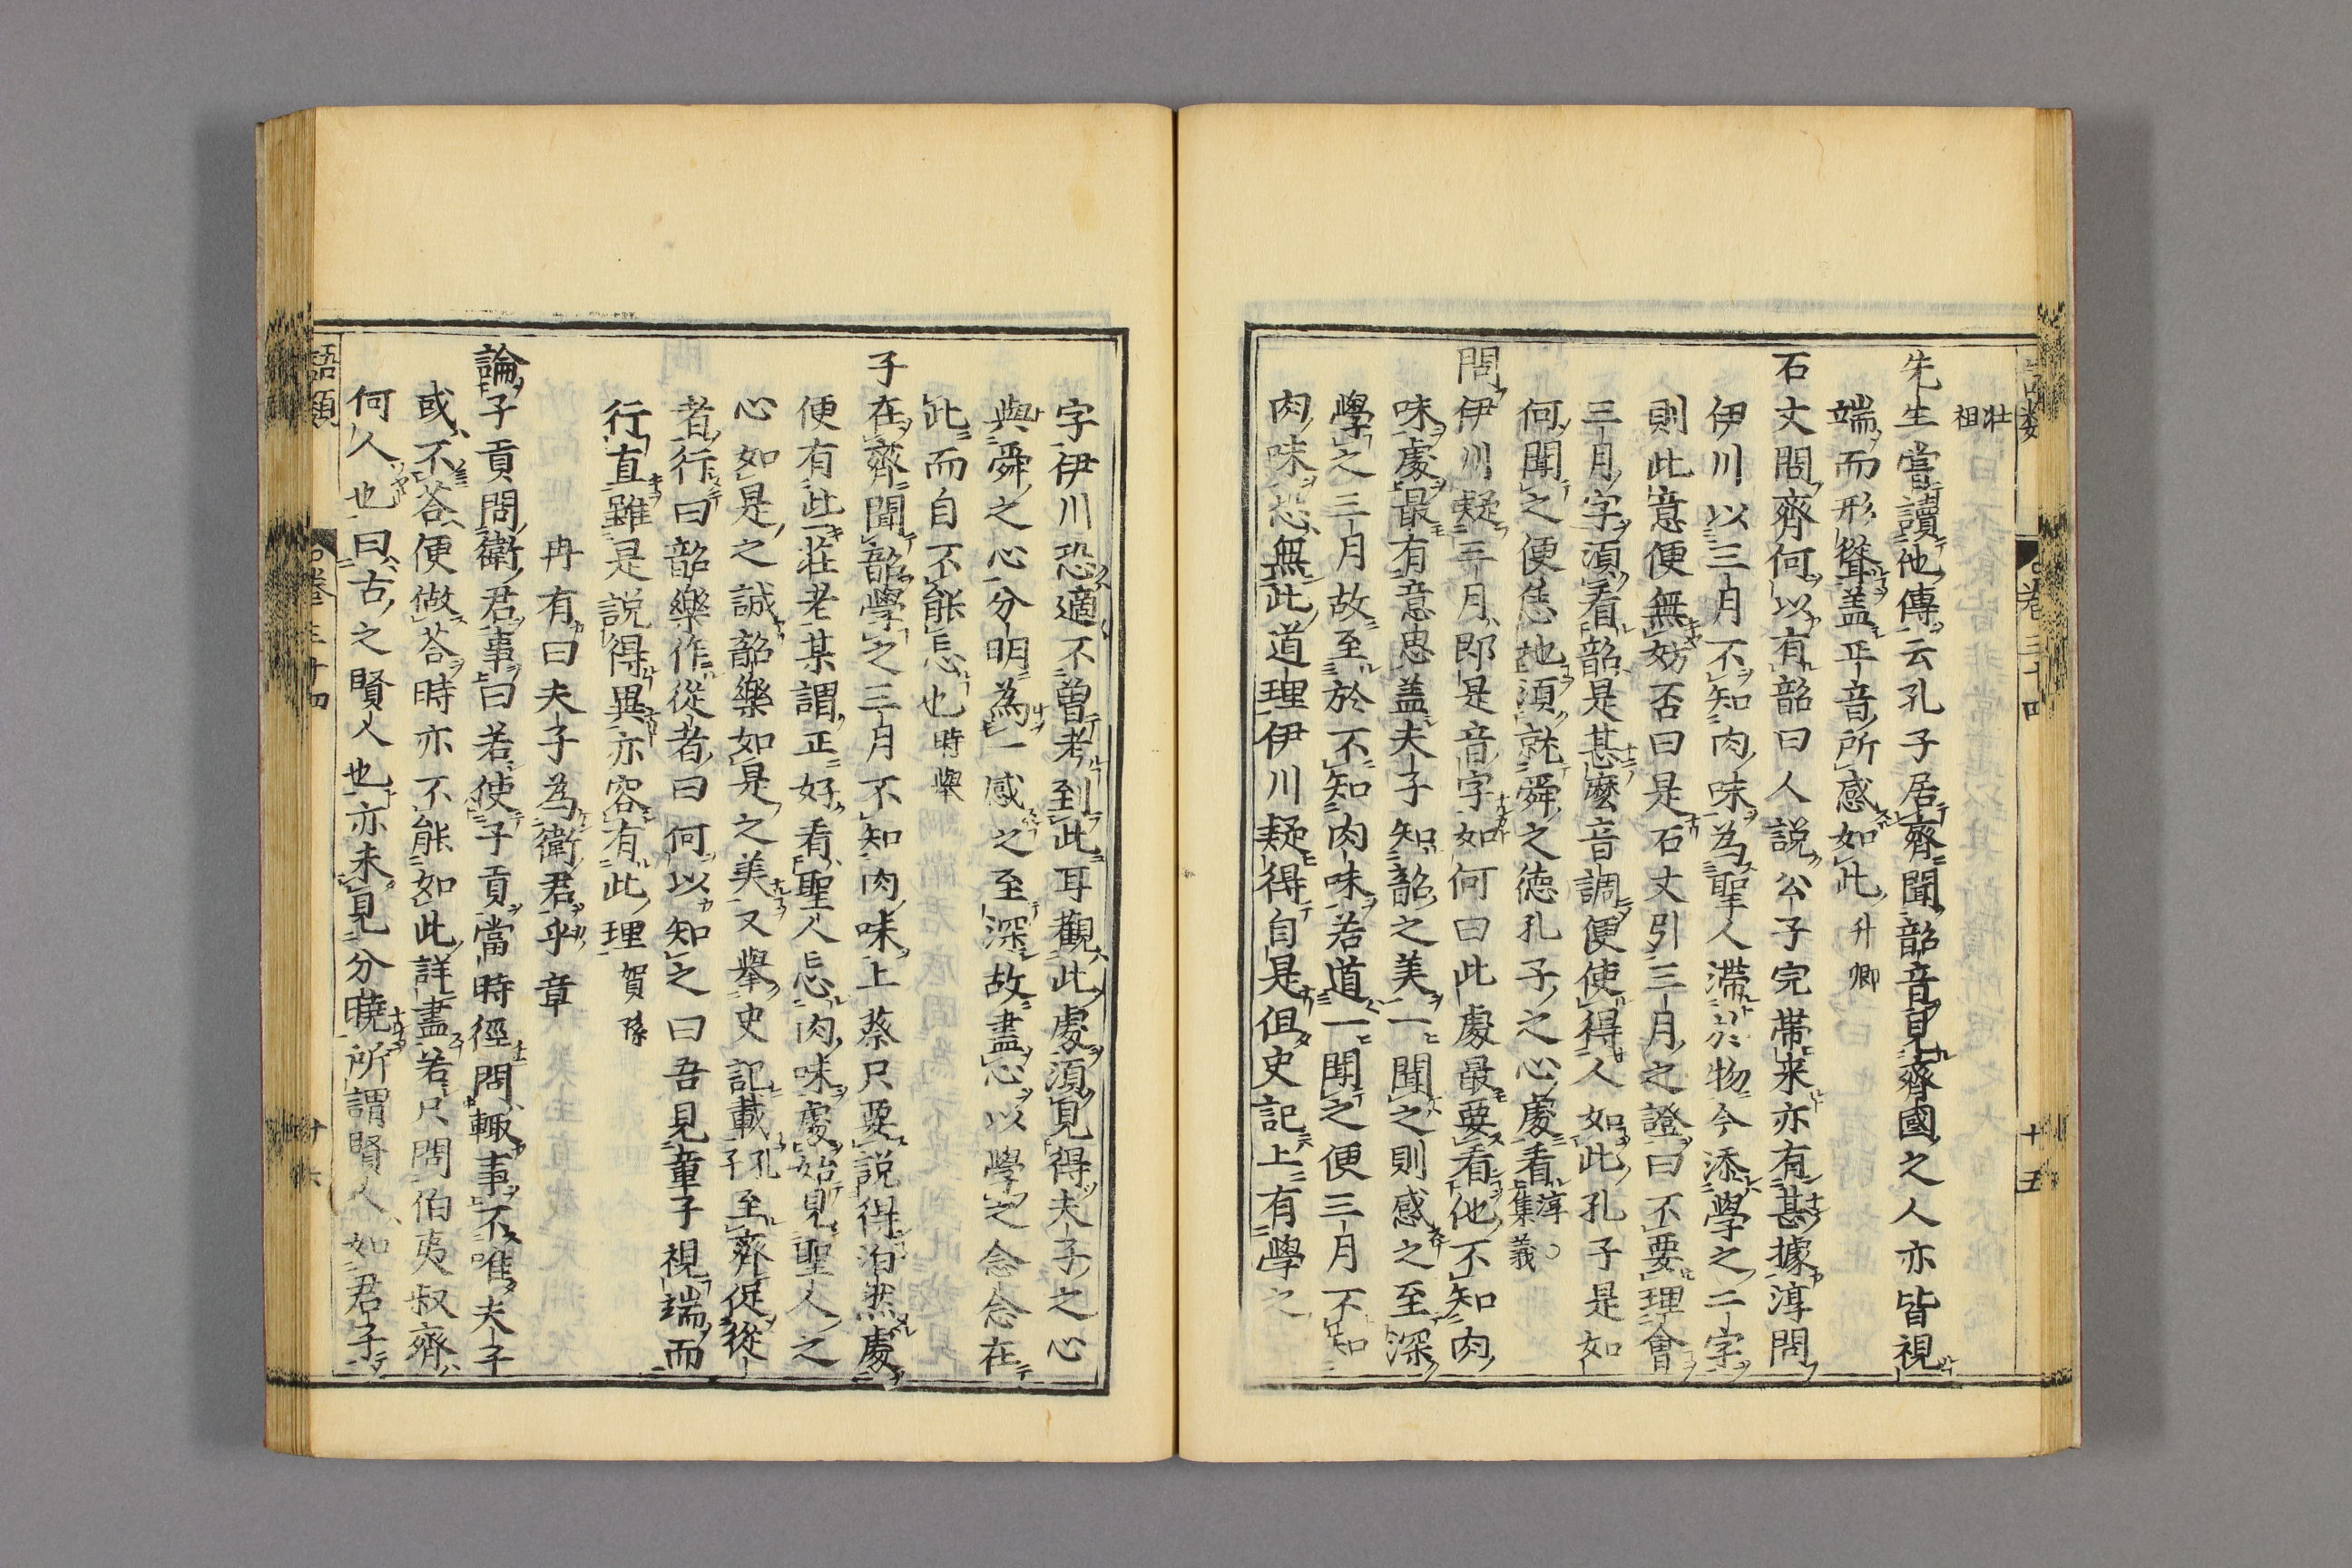 壮祖
先生嘗讀他傳云孔子居齊聞韶音見齊國之人亦皆視
端而形聳盖正音所感如此升卿
石丈問齊何以有韶曰人説公子完帯来亦有甚據淳問
伊川以三月不知肉味為聖人滞於物今添學之二字
則此意便無妨否曰是石丈引三月之證曰不要理會
三月字須看韶是甚麼音調便使得人如此孔子是如
何聞之便恁地須就舜之徳孔子之心處看淳○集義
問伊川疑三月即是音字如何曰此處最要看他不知肉
味處最有意思盖夫子知韶之美一聞之則感之至深
學之三月故至於不知肉味若道一聞之便三月不知
肉味恐無此道理伊川疑得自是但史記上有學之
字伊川恐適不曽考到此耳觀此處須見得夫子之心
與舜之心分明為一感之至深故盡心以學之念念在
此而自不能忘也時舉
子在齊聞韶學之三月不知肉味上蔡只要説得泊然處
便有此荘老某謂正好看聖人忘肉味處始見聖人之
心如是之誠韶樂如是之美又舉史記載孔子至齊促從
者行曰韶樂作從者曰何以知之曰吾見童子視端而
行直雖是説得異亦容有此理賀孫
冉有曰夫子為衛君乎章
論子貢問衛君事曰若使子貢當時徑問輒事不唯夫子
或不荅便做荅時亦不能如此詳盡若只問伯夷叔齊
何人也曰古之賢人也亦未見分曉所謂賢人如君子
語類
卷三十四
十五
十六